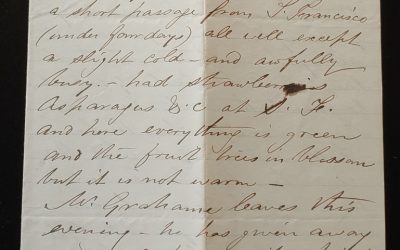 a short passage from S. Francisco
(under four days) all well except
a slight cold - and awfully
busy. - had strawberries
Asparagus &c at S. F.
and here everything is green
and the fruit trees in blossom
but it is not warm -
Mr. Grahame leaves this
evening - he has given away